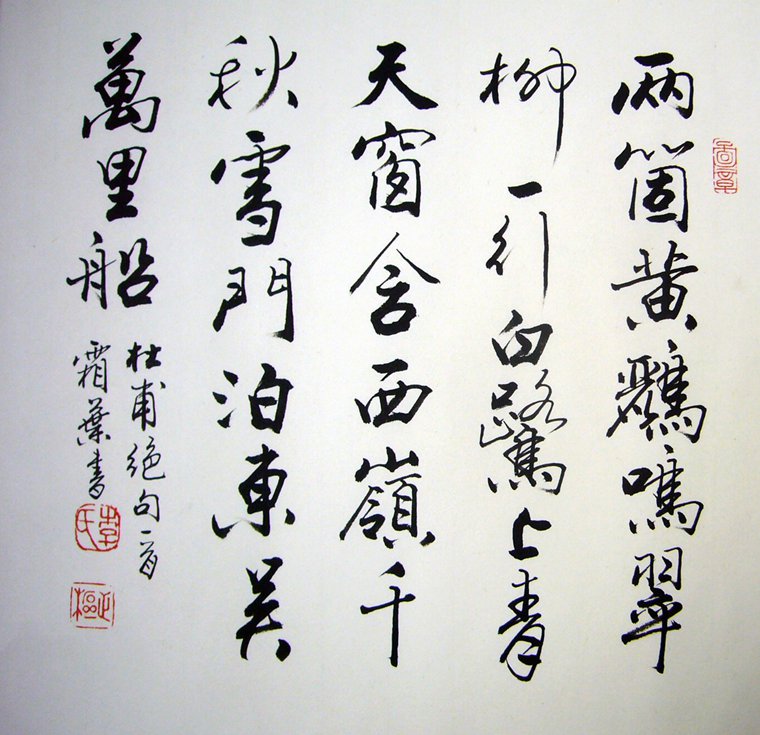 兩箇黃鸝鳴翠
柳一行白鷺上青
天窗含西嶺千
秋雪門泊東吳
萬里船
杜甫絕句一首
霜葉書
李氏